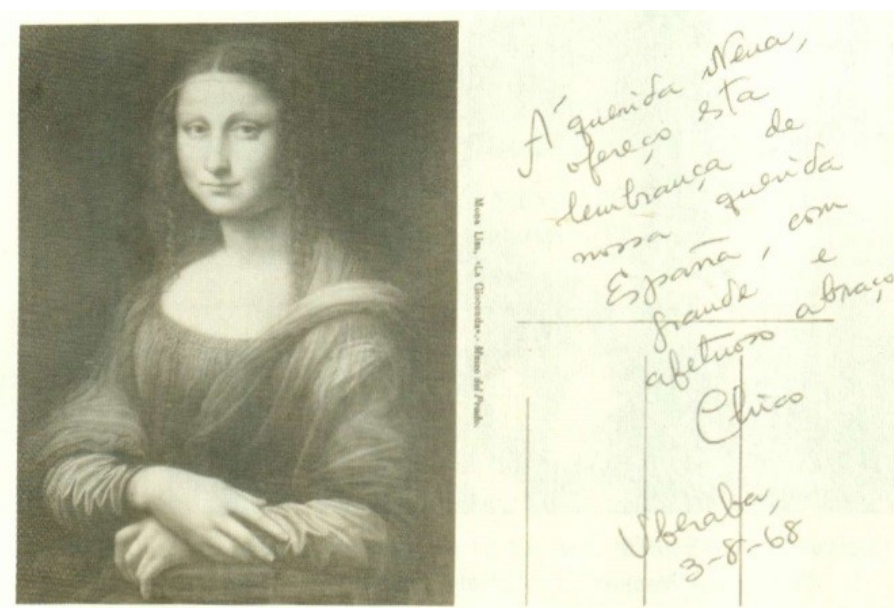 Mona Lisa, «La Gioconda».- Museo del Prado.
À querida Nena,
ofereço esta
lembrança de
nossa querida
España, com
grande e
afetuoso abraço
Chico
Uberaba,
3-8-68